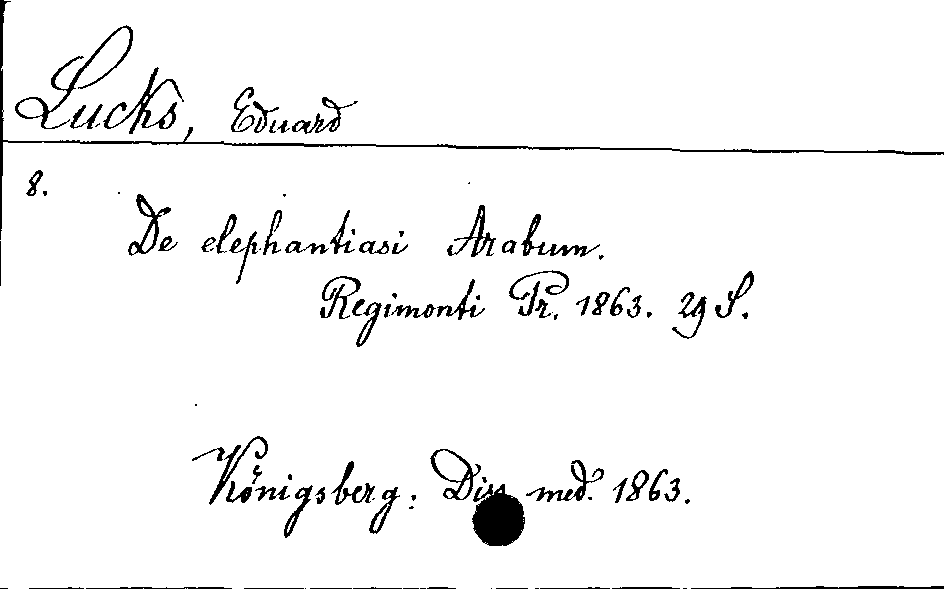 Lucks, Eduard
8.
De elephantiasi Arabum.
Regimonti Pr. 1863. 29 S.
Königsberg: Diss med. 1863.